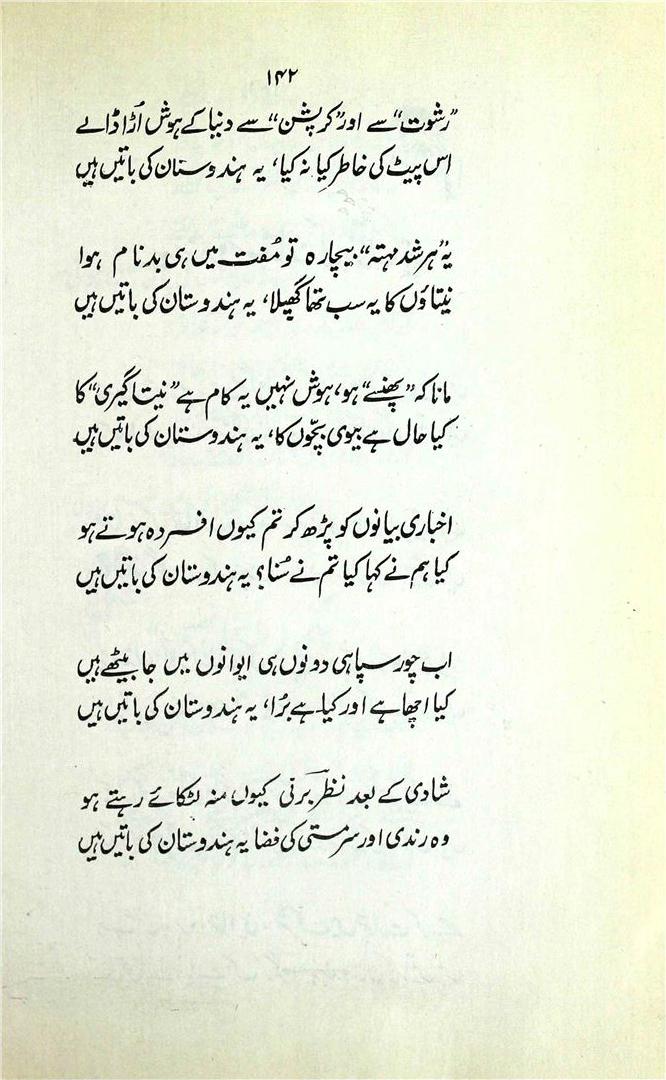 ۱۴۲
”رشوت“ سے اور ”کرپشن“ سے دنیا کے ہوش اُڑا ڈالے
اس پیٹ کی خاطر کیا نہ کیا، یہ ہندوستان کی باتیں ہیں
یہ ”ہرشد مہتہ“ بیچارہ تو مُفت میں ہی بدنام ہوا
نیتاؤں کا یہ سب تھا گھپلا، یہ ہندوستان کی باتیں ہیں
مانا کہ ”پھنسے“ ہو، ہوش نہیں یہ کام ہے ”نیتاگیری“ کا
کیا حال ہے بیوی بچّوں کا، یہ ہندوستان کی باتیں ہیں
اخباری بیانوں کو پڑھ کر تم کیوں افسردہ ہوتے ہو
کیا ہم نے کہا کیا تم نے سُنا؟ یہ ہندوستان کی باتیں ہیں
اب چور سپاہی دونوں ہی ایوانوں میں جا بیٹھے ہیں
کیا اچھا ہے اور کیا ہے بُرا، یہ ہندوستان کی باتیں ہیں
شادی کے بعد نظرؔ برنی کیوں منہ لٹکائے رہتے ہو
وہ رندی اور سرمستی کی فضا یہ ہندوستان کی باتیں ہیں